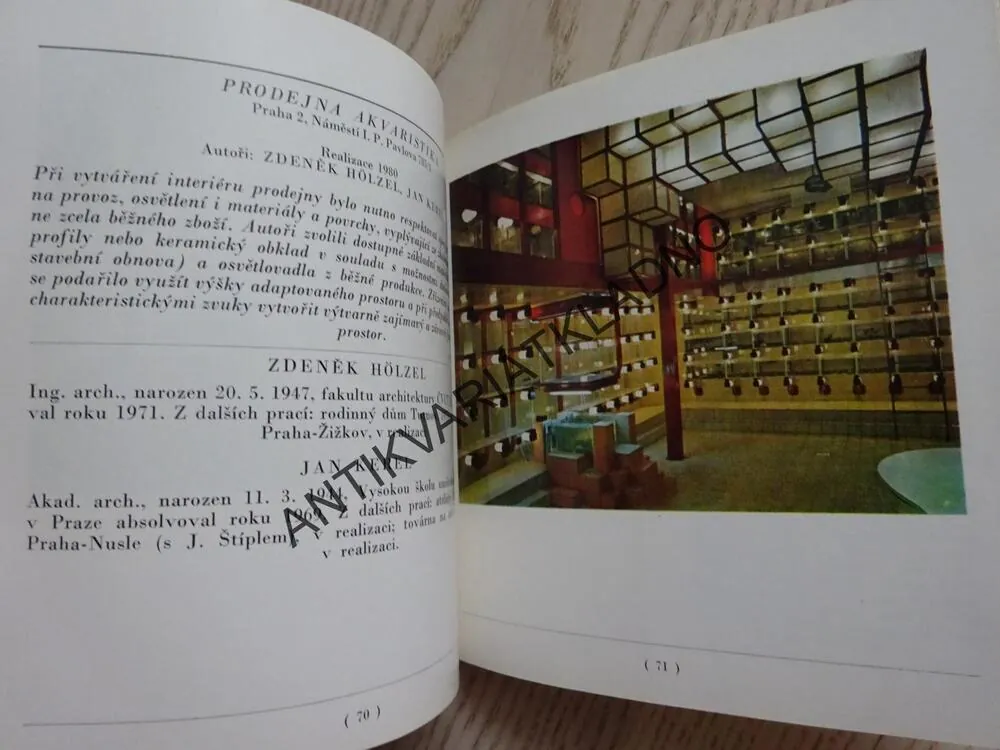 PRODEJNA AKVARISTIKA
Praha 2, Náměstí I. P. Pavlova
Realizace 1980
Autoři: ZDENĚK HÖLZEL, JAN
Při vytváření interiéru prodejny bylo nutno respektovat
na provoz, osvětlení i materiály a povrchy, vyplývající
ne zcela běžného zboží. Autoři zvolili dostupné základní
profily nebo keramický obklad v souladu s možnostmi
stavební obnova) a osvětlovadla z běžné produkce.
se podařilo využít výšky adaptovaného prostoru a při
charakteristickými zvuky vytvořit výtvarně zajímavý a
prostor.
ZDENĚK HÖLZEL
Ing. arch., narozen 20. 5. 1947, fakultu architektury
val roku 1971. Z dalších prací: rodinný dům
Praha-Žižkov, v realizaci
JAN
Akad. arch., narozen 11. 3. Vysokou školu
v Praze absolvoval roku 1969. Z dalších prací:
Praha-Nusle (s J. Štíplem), v realizaci; továrna na
v realizaci.
( 70 )
( 71 )
ANTIKVARIATKLADNO